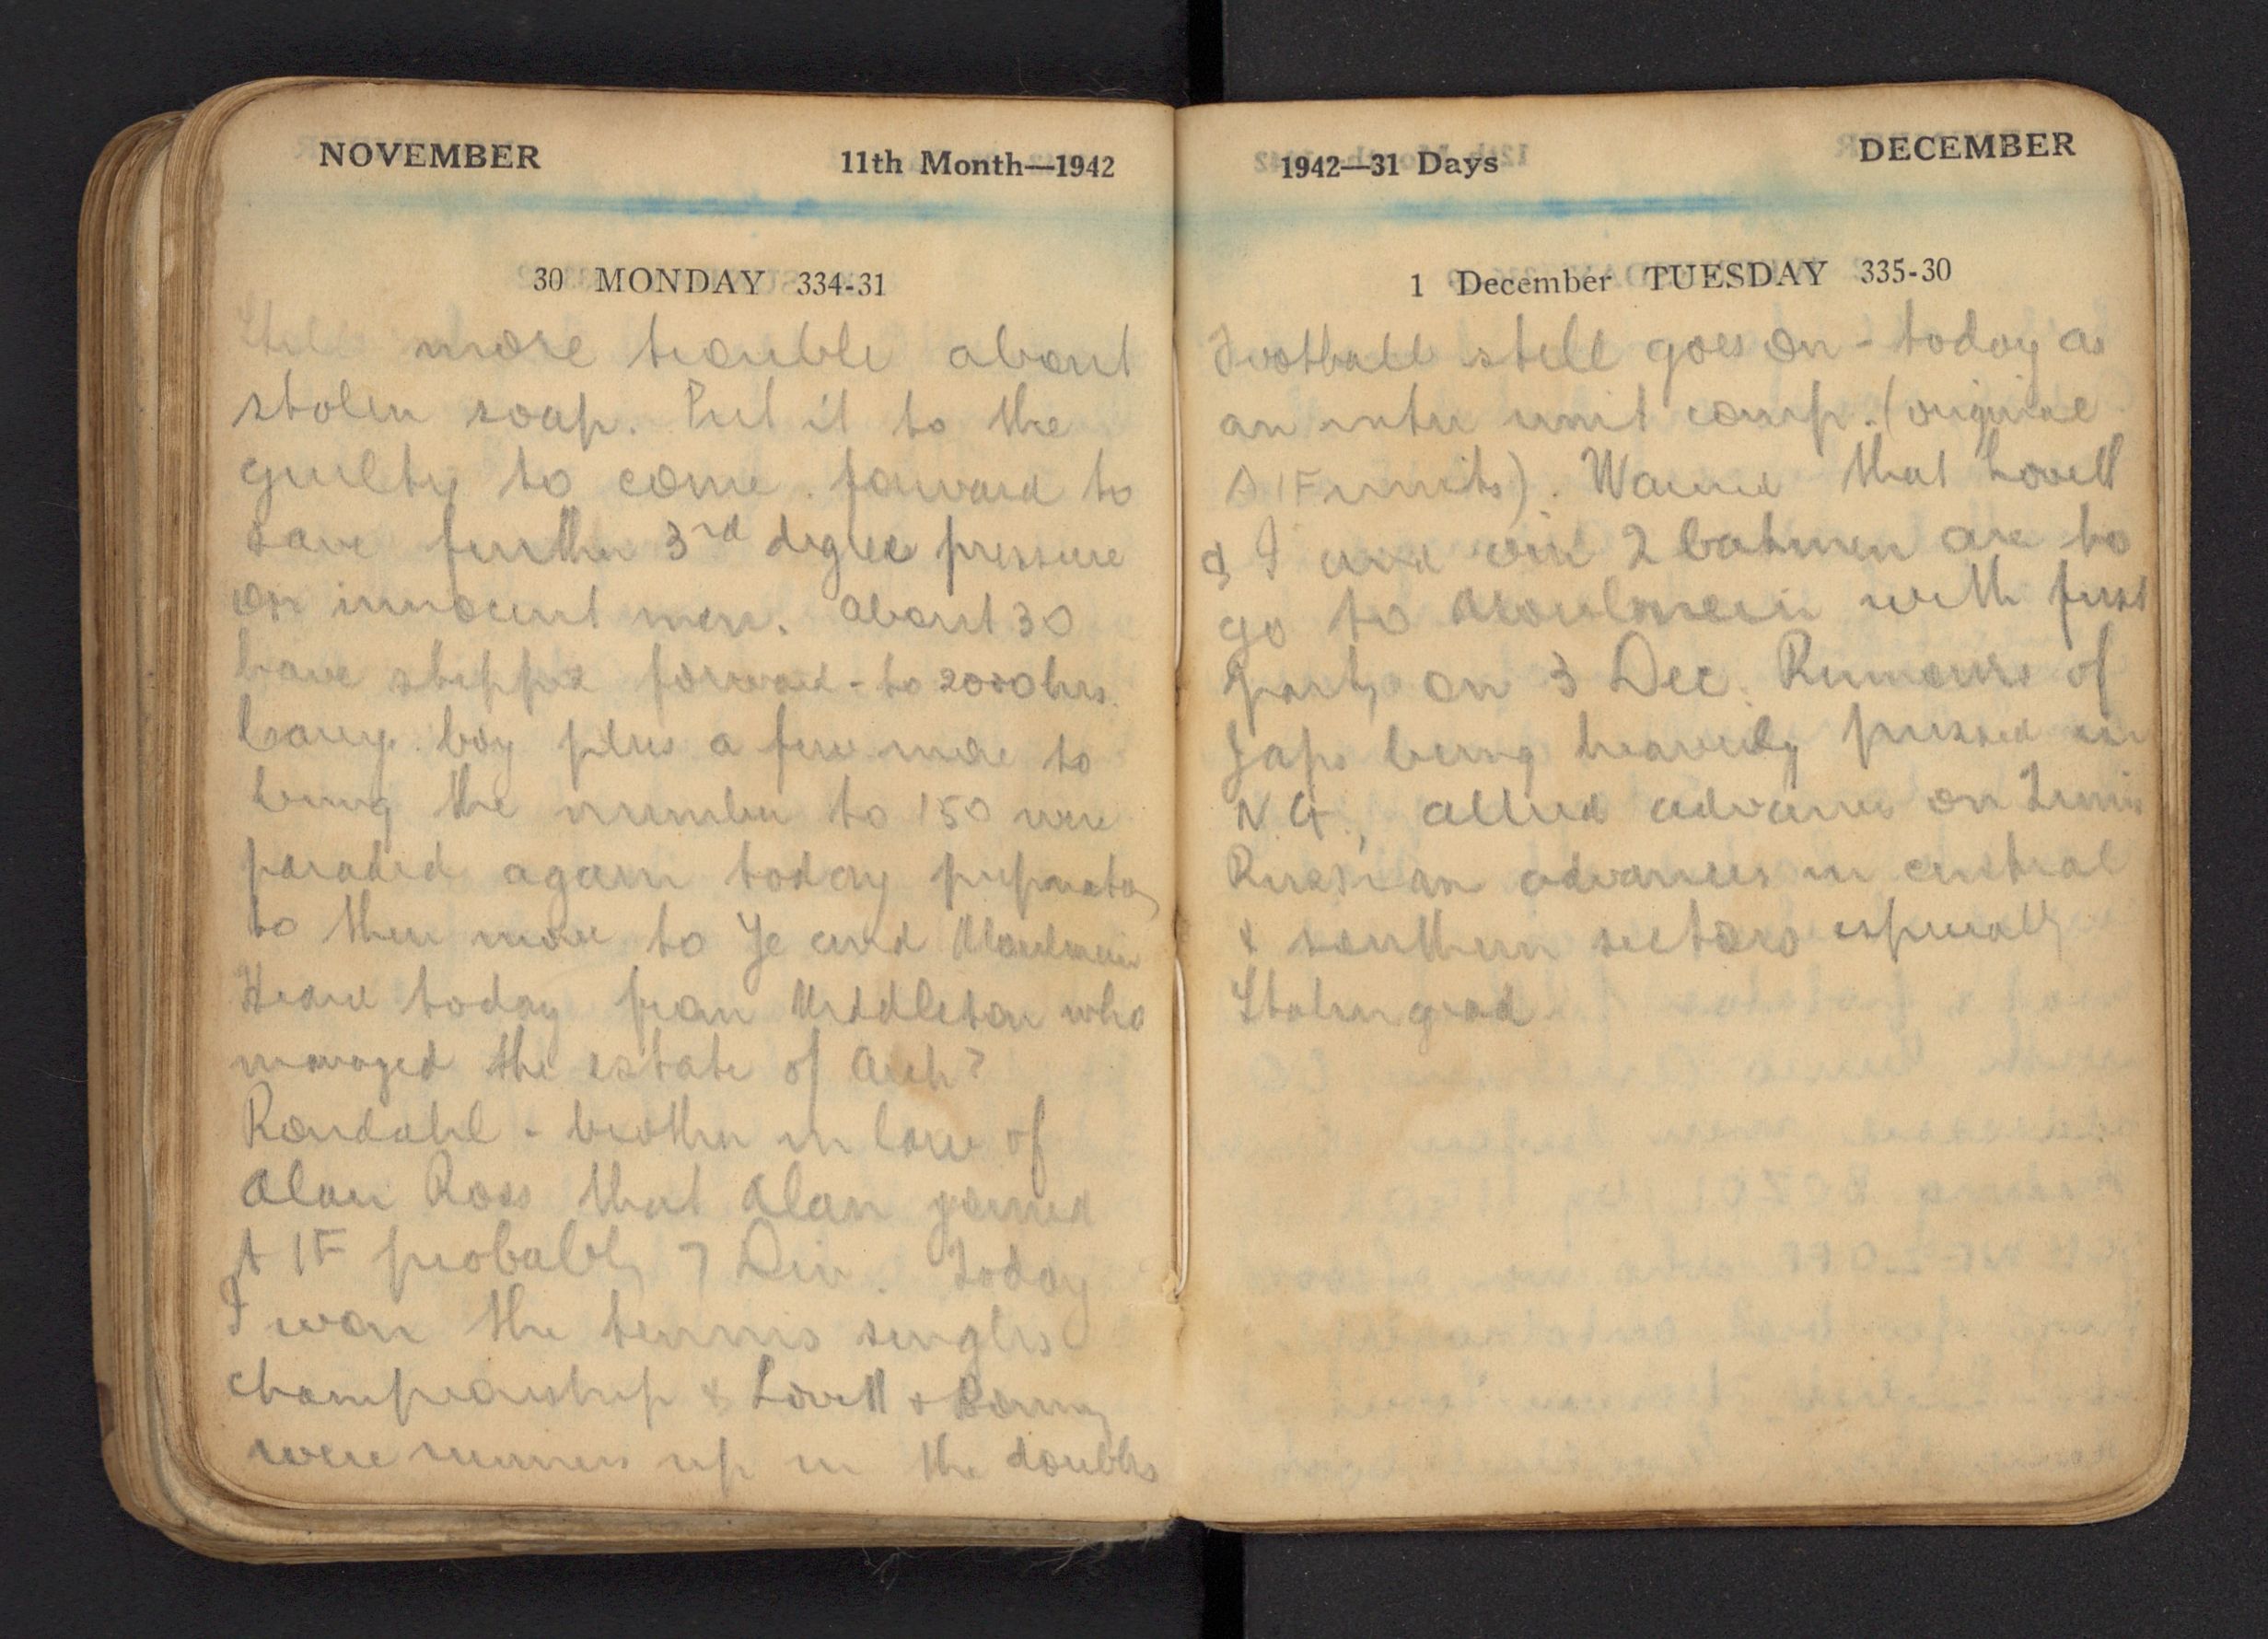 NOVEMBER 11th Month—1942
30 MONDAY 334-31
Still more trouble about
stolen soap. Put it to the
guilty to come forward to
save further 3rd degree pressure
on innocent men. About 30
have stepped forward - to 2000 hrs.
boy plus a few more to
bring the number to 150 were
paraded again today preparatory
to their move to Ye and Moulmein
Heard today from Middleton who
managed the estate of Arch?
Rondahl - brother in law of
Alan Ross that Alan joined
AIF probably 7 Div. Today
I won the tennis singles
championship & Lovett &
were runners up in the doubles
1942—31 Days DECEMBER
1 December TUESDAY 335-30
Football still goes on - today as
an inter unit comp. (original
AIF units). Warned that Lovett
& I and our 2 batmen are to
go to Moulmein with first
party on 3 Dec. Rumours of
Japs being heavily pressed in
N.G., allied advances on Tunis
Russian advances in central
& southern sectors especially
Stalingrad